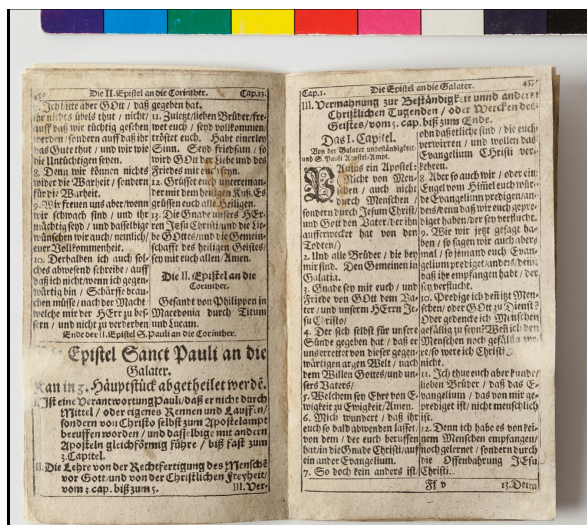 Die II. Epistel an die Corinther. Cap.13.
7. Ich bitte aber GOtt / daß
ihr nichts übels thut / nicht /
auff daß wir tüchtig gesehen
werden / sondern auff daß ihr
das Gute thut / und wir wie
die Untüchtigen seyen.
8. Denn wir können nichts
wider die Warheit / sondern
für die Warheit.
9. Wir freuen uns aber / wenn
wir schwach sind / und ihr
mächtig seyd / und dasselbige
wünschen wir auch / nemlich /
euer Vollkommenheit.
10. Derhalben ich auch solches
abwesend schreibe / auff
daß ich nicht / wenn ich gegenwärtig
bin / Schärffe brauchen
müsse / nach der Macht
welche mir der HErr zu bessern /
und nicht zu verderben
gegeben hat.
11. Zuletzt / lieben Brüder / freuet
euch / seyd vollkommen /
tröstet euch. Habt einerley
Sinn. Seyd friedsam / so
wird GOtt der Liebe und des
Friedes mit euch seyn.
12. Grüsset euch untereinander
mit dem heiligen Kuß. Es
grüssen euch alle Heiligen.
13. Die Gnade unsers HErren
Jesu Christi und die Liebe
GOttes und die Gemeinschafft
des heiligen Geistes /
sey mit euch allen / Amen.
Die II. Epistel an die
Corinther.
Gesandt von Philippen in
Macedonia durch Titum
und Lucam.
Ende der II. Epistel S. Pauli an die Corinther.
Epistel Sanct Pauli an die
Galater.
Kan in 3. Häuptstück abgetheilet werdē.
I. Ist eine Verantwortung Pauli / daß er nicht durch
Mittel / oder eigenes Rennen und Lauffen /
sondern von Christo selbst zum Apostelampt
beruffen worden / und dasselbige mit andern
Aposteln gleichförmig führe / biß fast zum
3. Capitel.
II. Die Lehre von der Rechtfertigung des Menschē
vor Gott / und von der Christlichen Freyheit /
vom 3 cap. biß zum 5.
III. Ver-
Cap.1. Die Epistel an die Galater.
III. Vermahnung zur Beständigkeit unnd andern
Christlichen Tugenden / oder Wercken des
Geistes / vom 5. cap. biß zum Ende.
Das I. Capitel.
Von der Galater unbeständigkeit
und S. Pauli Apostel-Ampt.
PAulus ein Apostel:
Nicht von Menschen /
auch nicht
durch Menschen /
sondern durch Jesum Christ /
und Gott den Vater / der ihn
aufferwecket hat von den
Todten /
2. Und alle Brüder / die bey
mir sind. Den Gemeinen in
Galatia.
3. Gnade sey mit euch / und
Friede von GOtt dem Vater /
und unserm HErrn Jesu
Christo /
4. Der sich selbst für unsere
Sünde gegeben hat / daß er
uns errettet von dieser gegenwärtigen
argen Welt / nach
dem Willen Gottes / und unsers
Vaters /
5. Welchem sey Ehre von Ewigkeit
zu Ewigkeit / Amen.
6. Mich wundert / daß ihr
euch so bald abwenden lasset /
von dem / der euch beruffen
hat / in die Gnade Christi / auf
ein ander Evangelium.
7. So doch kein anders ist /
ohn daß etliche sind / die euch
verwirren / und wollen das
Evangelium CHristi verkehren.
8. Aber so auch wir / oder ein
Engel vom Himel euch würde
Evangelium predigen / anders /
denn daß wir euch geprediget
haben / der sey verflucht.
9. Wie wir jetzt gesagt haben /
so sagen wir auch abermal /
so jemand euch Evangelium
prediget / anders / denn
daß ihr empfangen habt / der
sey verflucht.
10. Predige ich deñ itzt Menschen /
oder GOtt zu Dienst?
Oder gedencke ich Menschen
gefällig zu seyn? Weñ ich den
Menschen noch gefällig wäre /
so were ich Christi
nicht.
11. Ich thue euch aber kund /
lieben Brüder / daß das Evangelium /
das von mir geprediget
ist / nicht menschlich
ist.
12. Denn ich habe es von keinem
Menschen empfangen /
noch gelernet / sondern durch
die Offenbahrung JEsu
Christi.
Ff v 13. Denn